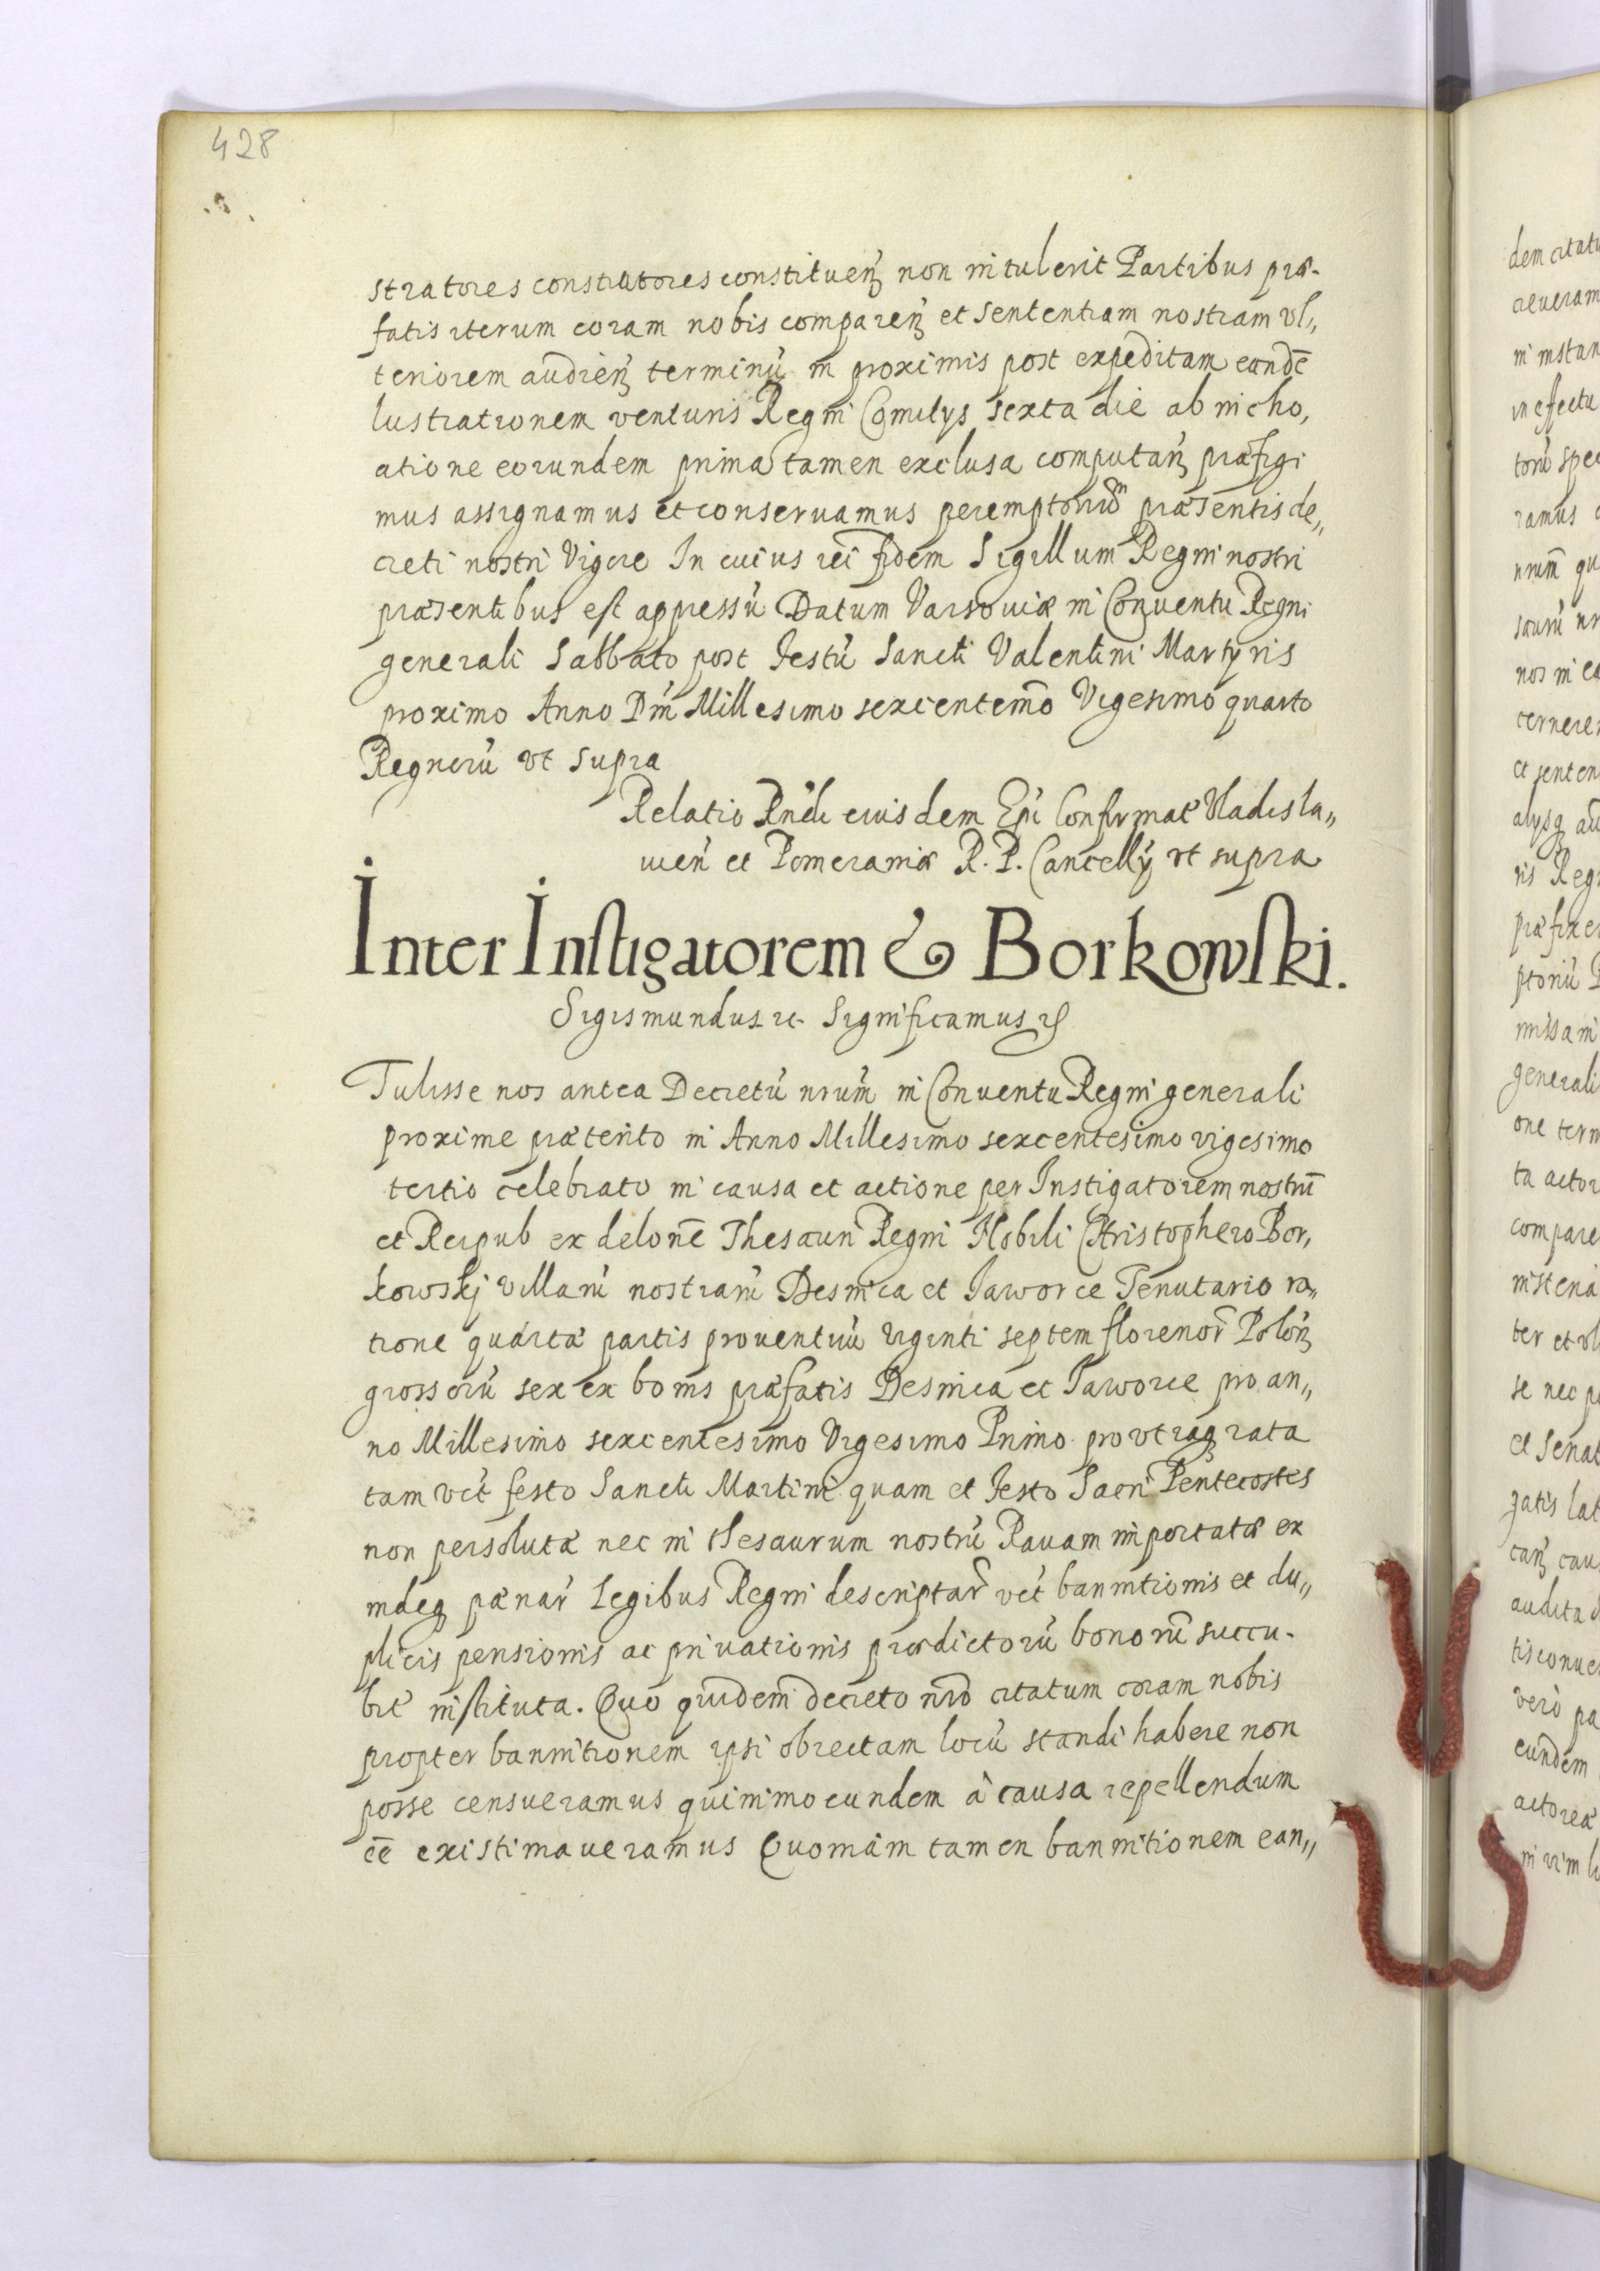 428
stratores constitutores constituen̄ non intulerit Partibus præ-
fatis iterum coram nobis comparen̄ et sententiam nostram vl„
teriorem audien̄ terminū in proximis post expeditam eandē
lustrationem venturis Regni Comitys sexta die ab incho„
atione eorundem prima tamen exclusa computan̄ præfigi
mus assignamus et conseruamus peremptoriū præsentis de„
creti nostri Vigore In cuius rei fidem Sigillum Regni nostri
præsentibus est appressū Datum Varsouiæ in Conuentu Regni
generali Sabbato post Festū Sancti Valentini Martyris
proximo Anno Dn̄i Millesimo sexcentemō Vigesimo quarto
Regnorū vt supra
Relatio Rndi eiusdem Epi Confirmat Vladisla„
uien̄ et Pomeraniæ R. P. Cancellÿ vt supra
Inter Instigatorem & Borkowski.
Sigismundus etc. Significamus etc
Tulisse nos antea Decretū nrūm in Conuentu Regni generali
proxime præterito in Anno Millesimo sexcentesimo vigesimo
tertio celebrato in causa et actione per Instigatorem nostrū
et Reipub ex delonē Thesauri Regni Nobili Christophero Bor„
kowskj villarū nostrarū Desnica et Jaworce Tenutario ra„
tione quartæ partis prouentuū viginti septem florenor̄ Polon̄
grossorū sex ex bonis præfatis Desnica et Jaworce pro an„
no Millesimo sexcentesimo Vigesimo Primo pro vtraq rata
tam vēt festo Sancti Martini quam et Festo Sacri Pentecostes
non persolutæ nec in thesaurum nostrū Rauam importatæ ex
indeq pænar̄ Legibus Regni descriptar̄ vēt bannitionis et du„
plicis pensionis ac priuationis prædictorū bonorū succu-
bit̄ instituta. Quo quidem decreto nrō citatum coram nobis
propter bannitionem ipsi obiectam locū standi habere non
posse censueramus quinimo eundem à causa repellendum
eē existimaueramus Quoniam tamen bannitionem ean„